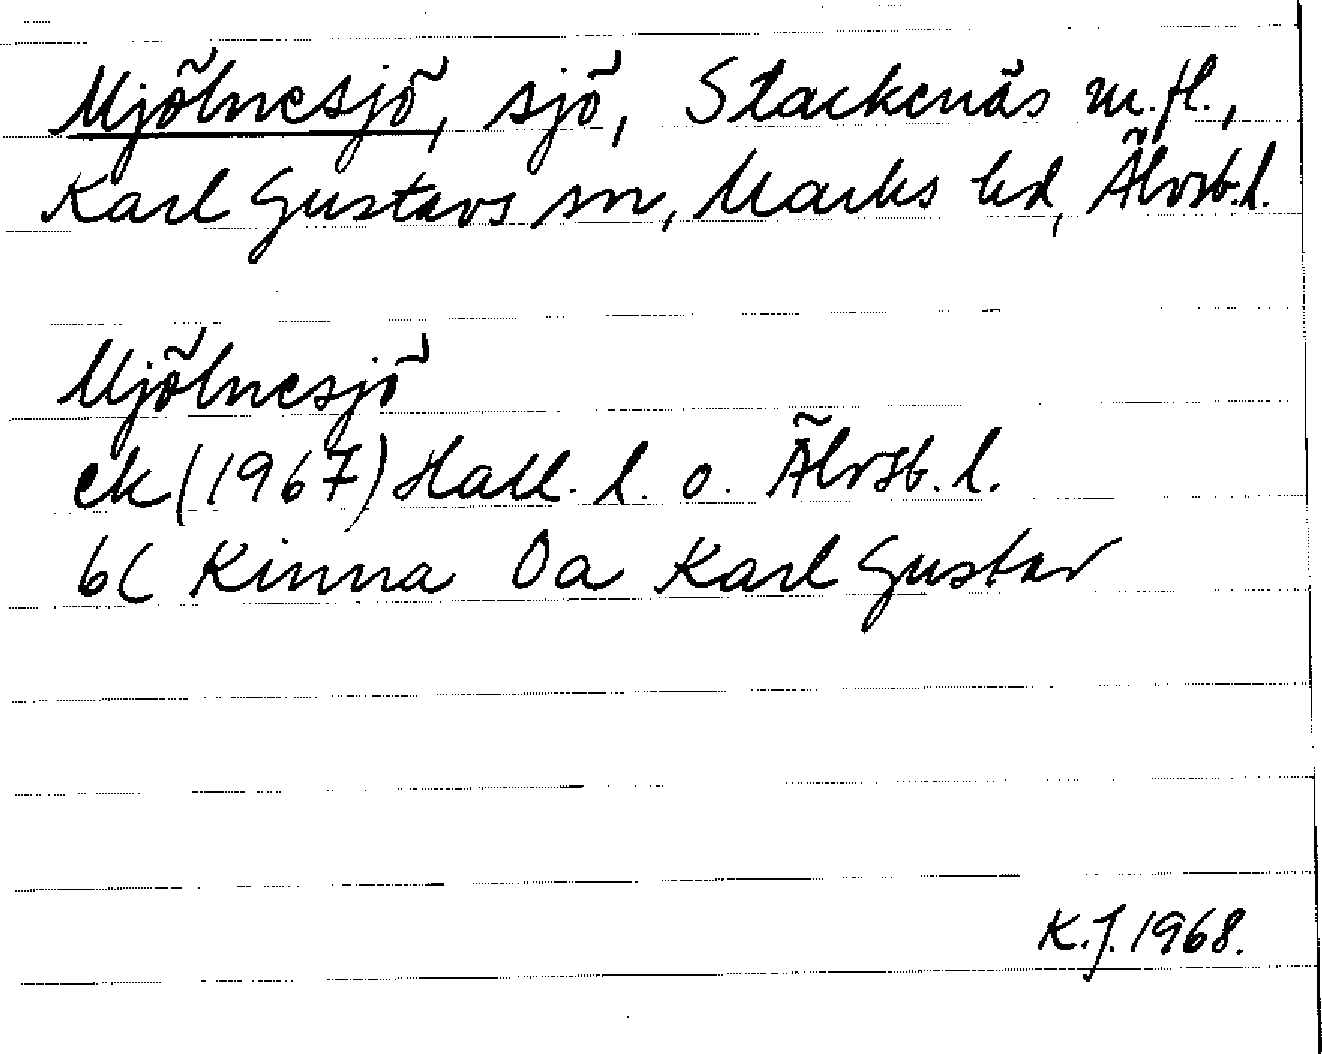 Mjölnesjö, sjö, Stackenäs m.fl.,
Karl Gustavs sn, Marks hd, Älvsb.l.
Mjölnesjö
ek (1967) Hall. l. o. Älvsb. l.
6C Kinna 0a Karl Gustav
K.J. 1968.